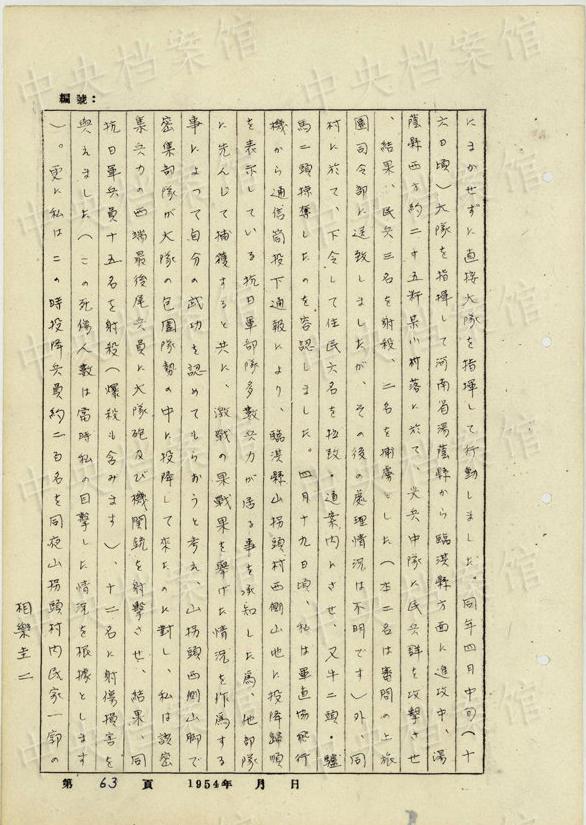 編號：
にまかせずに直接大隊を指揮して行動しました。同年四月中旬（十
六日頃）大隊を指揮して河南省湯蔭縣から臨淇縣方面に進攻中、湯
蔭縣西方約二十五粁呆小村落に於て、尖兵中隊に民兵群を攻撃させ
、結果、民兵三名を射殺、二名を捕虜とした（本二名は審問の上旅
團司令部に送致しましたが、その後の處理情況は不明です）外、同
村に於て、下令して住民六名を拉致・道案内とさせ、又牛二頭・驢
馬二頭掠奪したのを容認しました。四月十九日頃、私は軍直協飛行
機から通信筒投下通報により、臨淇縣山拐頭村西側山地に投降歸順
を表示している抗日軍部隊多数兵力が居る事を承知した爲、他部隊
に先んじて捕獲すると共に、激戦の果戦果を擧げた情況を作爲する
事によつて自分の武功を認めてもらおうと考え、山拐頭西側山脚で
密集部隊が大隊の包圍隊勢の中に投降して来たのに對し、私は該密
集兵力の西端最後尾兵員に大隊砲及び機関銃を射撃させ、結果、同
抗日軍兵員十五名を射殺（爆殺も含みます）、十二名に射傷損害を
與えました（この死傷人数は當時私の目撃した情況を根據とします
）。更に私はこの時投降兵員約二百名を同夜山拐頭村内民家一郭の
相樂圭二
第 63 頁 1954年 月 日
中央档案馆